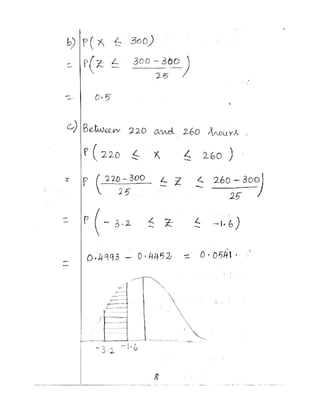 b) P(X ≤ 300)
= P(Z ≤ 300 - 300 / 25)
= 0.5
c) Between 220 and 260 hours.
P(220 ≤ X ≤ 260)
= P(220-300 / 25 ≤ Z ≤ 260-300 / 25)
= P(-3.2 ≤ Z ≤ -1.6)
= 0.4993 - 0.4452 = 0.0541.
-3.2 -1.6
8